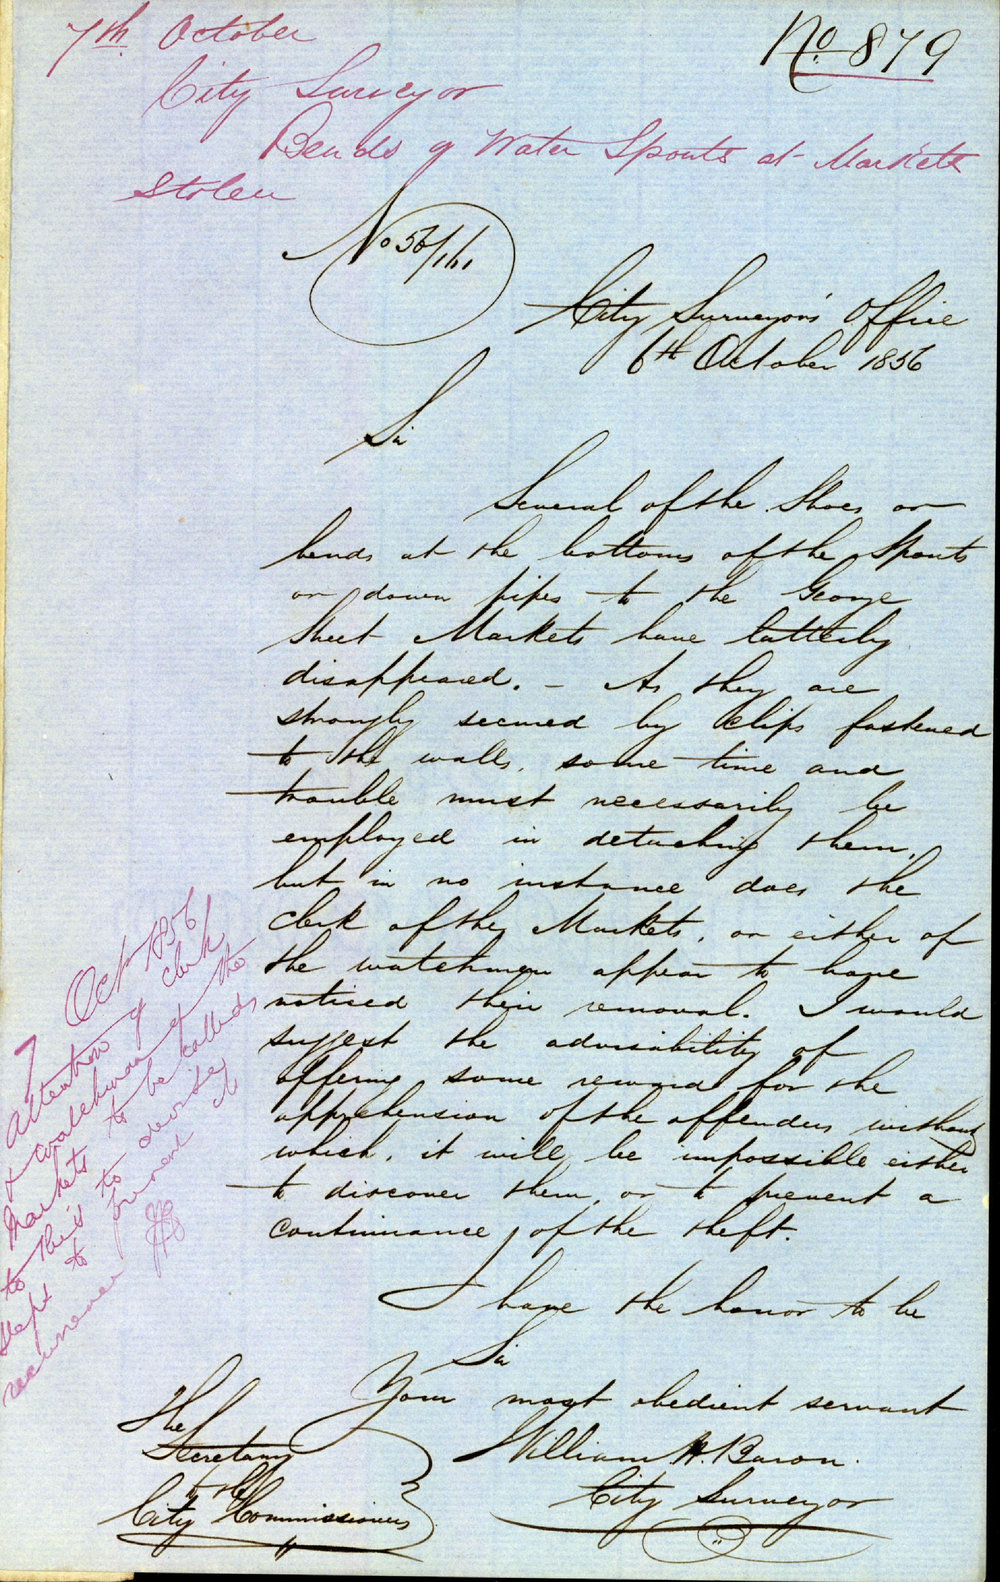 7th October
No. 879
City Surveyor
Bends of Water Spouts at Markets
Stolen
No 56/161
City Surveyor's Office
6th October 1856
Sir
Several of the Shoes or
bends at the bottoms of the Spouts
or down pipes to the George
Street Markets have latterly
disappeared. – As they are
strongly secured by clips fastened
to the walls, some time and
trouble must necessarily be
employed in detaching them,
but in no instance does the
Clerk of the Markets, or either of
the watchmen appear to have
noticed their removal. I would
suggest the advisability of
offering some reward for the
apprehension of the offenders without
which, it will be impossible either
to discover them, or to prevent a
continuance of the theft.
I have the honor to be
Sir
Your most obedient servant
William H. Baron.
City Surveyor
The
Secretary
to the
City Commissioners
7 Oct 1856
Attention of Clerk
& Watchman of the
Markets to be called
to this & to devise
steps to prevent its
recurrence